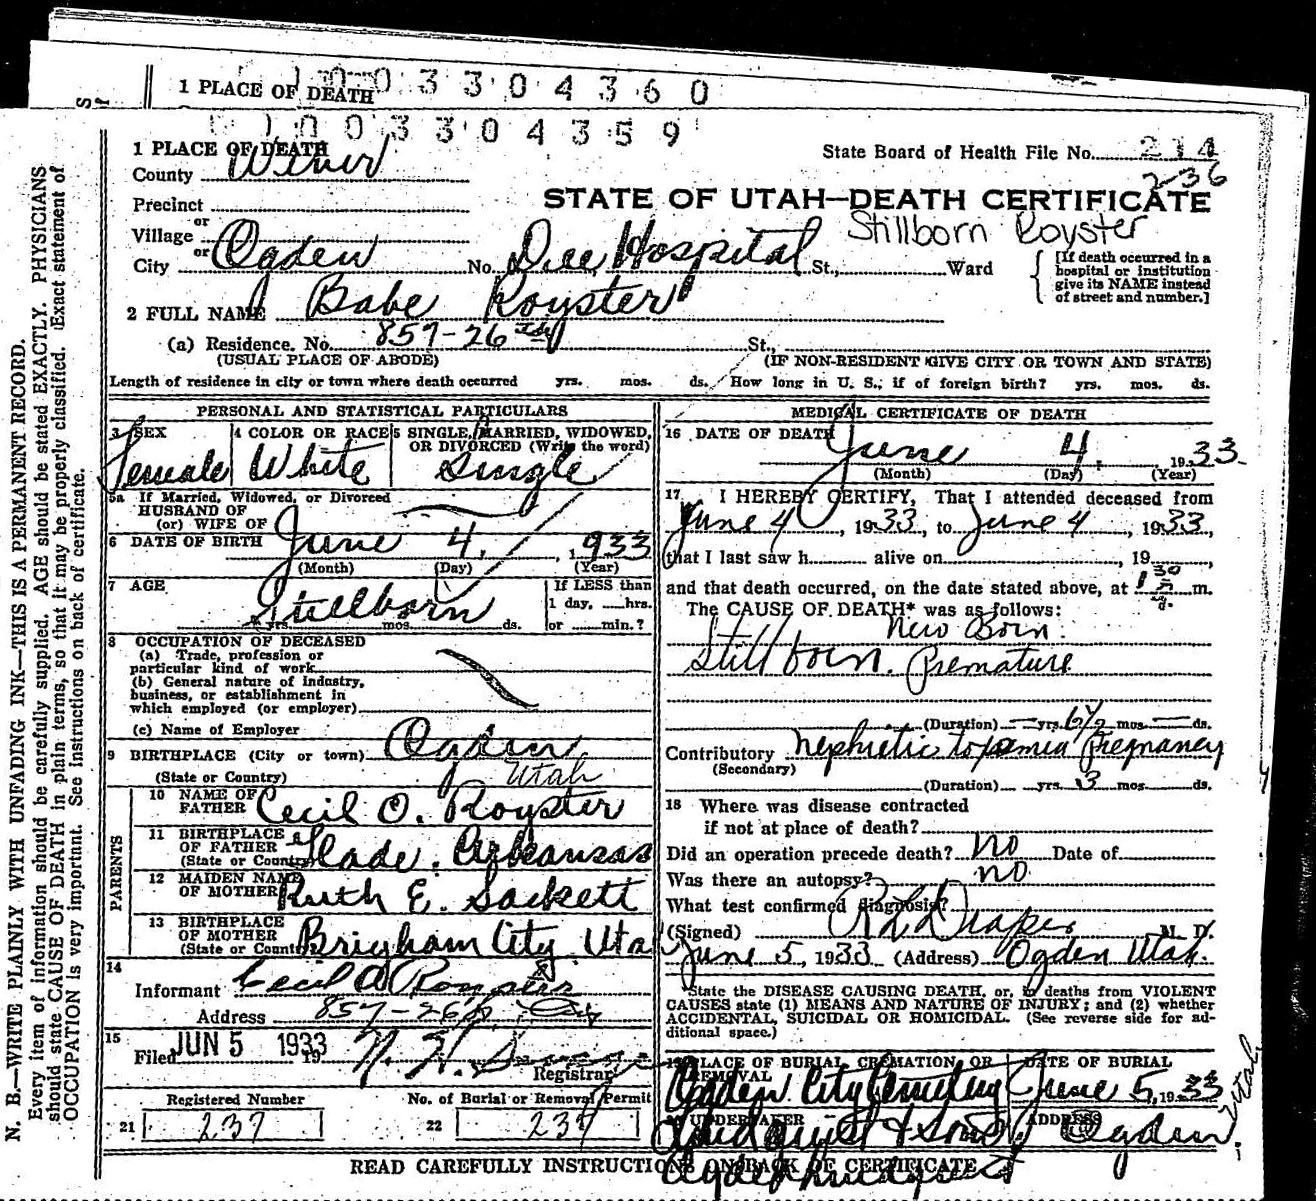 1 PLACE OF DEATH
0 0 3 3 0 4 3 6 0
0 0 3 3 0 4 3 5 9
1 PLACE OF DEATH
State Board of Health File No. 214
2-36
County Weber
STATE OF UTAH—DEATH CERTIFICATE
Precinct
Stillborn Royster
or
Village
or
City Ogden No. Dee Hospital St., Ward
[If death occurred in a
hospital or institution
give its NAME instead
of street and number.]
2 FULL NAME Babe Royster
(a) Residence. No. 857-26th St.,
(USUAL PLACE OF ABODE) (IF NON-RESIDENT GIVE CITY OR TOWN AND STATE)
Length of residence in city or town where death occurred yrs. mos. ds. How long in U. S., if of foreign birth? yrs. mos. ds.
PERSONAL AND STATISTICAL PARTICULARS
3 SEX
Female
4 COLOR OR RACE
White
5 SINGLE, MARRIED, WIDOWED,
OR DIVORCED (Write the word)
Single
5a If Married, Widowed, or Divorced
HUSBAND OF
(or) WIFE OF
6 DATE OF BIRTH June 4, 1933
(Month) (Day) (Year)
7 AGE
Stillborn
yrs. mos. ds.
If LESS than
1 day, hrs.
or min.?
8 OCCUPATION OF DECEASED
(a) Trade, profession or
particular kind of work
(b) General nature of industry,
business, or establishment in
which employed (or employer)
(c) Name of Employer
9 BIRTHPLACE (City or town) Ogden
(State or Country) Utah
PARENTS
10 NAME OF
FATHER Cecil O. Royster
11 BIRTHPLACE
OF FATHER
(State or Country) Slade. Arkansas
12 MAIDEN NAME
OF MOTHER Ruth E. Sackett
13 BIRTHPLACE
OF MOTHER
(State or Country) Brigham City, Uta
14
Informant Cecil
Address 857-26th City
15
Filed JUN 5 1933
Registrar
Registered Number
21 237
No. of Burial or Removal Permit
22 237
MEDICAL CERTIFICATE OF DEATH
16 DATE OF DEATH June 4, 1933
(Month) (Day) (Year)
17 I HEREBY CERTIFY, That I attended deceased from
June 4, 1933, to June 4, 1933,
that I last saw h alive on , 19 ,
and that death occurred, on the date stated above, at 1 30 a. m.
The CAUSE OF DEATH* was as follows:
New Born
Stillborn. Premature
(Duration) yrs. 6½ mos. ds.
Contributory Nephretic toxemia Pregnancy
(Secondary)
(Duration) yrs. 3 mos. ds.
18 Where was disease contracted
if not at place of death?
Did an operation precede death? No Date of
Was there an autopsy? no
What test confirmed diagnosis?
(Signed) Draper M. D.
June 5, 1933 (Address) Ogden Utah.
*State the DISEASE CAUSING DEATH, or, in deaths from VIOLENT
CAUSES state (1) MEANS AND NATURE OF INJURY; and (2) whether
ACCIDENTAL, SUICIDAL OR HOMICIDAL. (See reverse side for ad-
ditional space.)
19 PLACE OF BURIAL CREMATION OR
REMOVAL
Ogden City Cemetery
DATE OF BURIAL
June 5, 1933
UNDERTAKER
Lindquist & Sons
ADDRESS
Ogden Utah.
READ CAREFULLY INSTRUCTIONS ON BACK OF CERTIFICATE
N. B.—WRITE PLAINLY WITH UNFADING INK—THIS IS A PERMANENT RECORD.
Every item of information should be carefully supplied. AGE should be stated EXACTLY. PHYSICIANS
should state CAUSE OF DEATH in plain terms, so that it may be properly classified. Exact statement of
OCCUPATION is very important. See instructions on back of certificate.